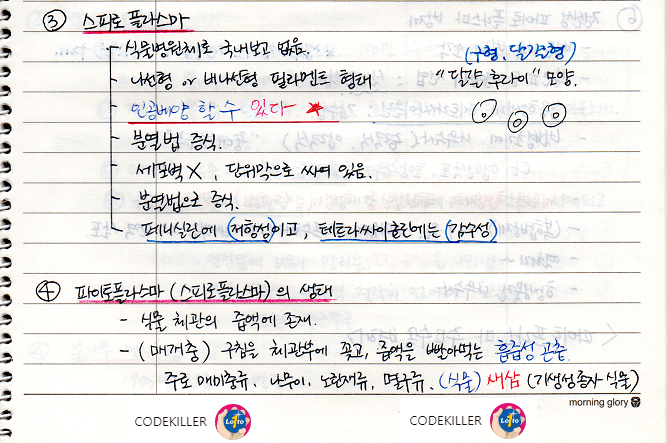 ③ 스피로플라스마
- 식물병원체로 국내보고 없음. (구형, 달걀형)
- 나선형 or 비나선형 필라멘트 형태 "달걀 후라이" 모양.
- 인공배양 할 수 있다 ★
- 분열법 증식.
- 세포벽 X, 단위막으로 싸여 있음.
- 분열법으로 증식.
- 페니실린에 (저항성)이고, 테트라싸이클린에는 (감수성)
④ 파이토플라스마 (스피로플라스마)의 생태
- 식물 체관의 즙액에 존재.
- (매개충) 구침을 체관부에 꽂고, 즙액을 빨아먹는 흡급성 곤충.
주로 매미충류, 나무이, 노린재류, 멸구류. (식물) 새삼 (기생성종자 식물)
morning glory
CODEKILLER Lotto CODEKILLER Lotto